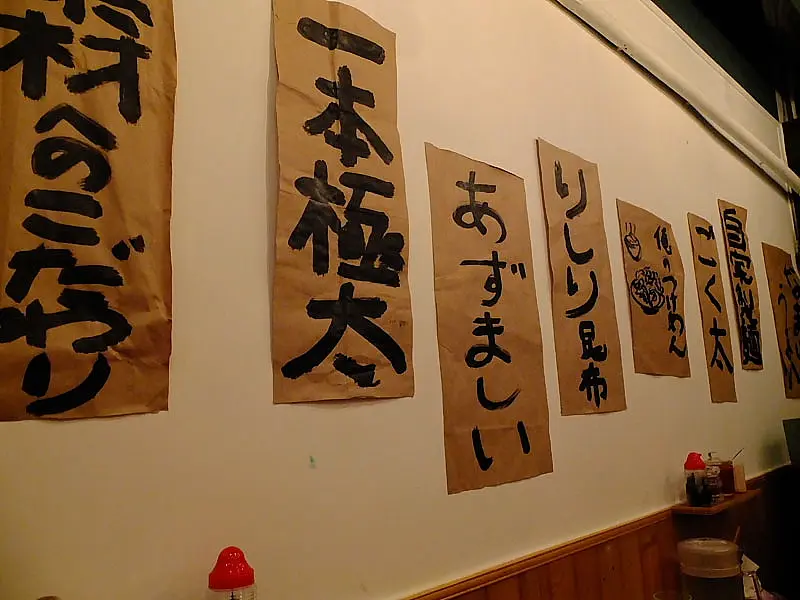 材へのこだわり
一本極太
あずましい
りしり昆布
俺のつけめん
ごく太
自家製麺